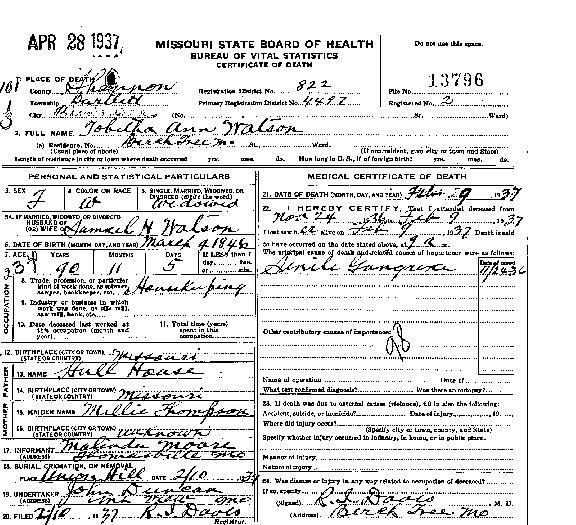 APR 28 1937
MISSOURI STATE BOARD OF HEALTH
BUREAU OF VITAL STATISTICS
CERTIFICATE OF DEATH
Do not use this space.
13796
1. PLACE OF DEATH
County Shannon Registration District No. 822 File No.
Township Bartlett Primary Registration District No. 4497 Registered No. 2
City (No. St. Ward)
2. FULL NAME Tobitha Ann Watson
(a) Residence, No. Birch Tree Mo St. Ward.
(Usual place of abode) (If nonresident, give city or town and State)
Length of residence in city or town where death occurred yrs. mos. ds. How long in U. S., if of foreign birth? yrs. mos. ds.
PERSONAL AND STATISTICAL PARTICULARS
3. SEX F
4. COLOR OR RACE W
5. SINGLE, MARRIED, WIDOWED, OR DIVORCED (write the word) Widowed
5A. IF MARRIED, WIDOWED, OR DIVORCED
HUSBAND OF
(OR) WIFE OF Samuel H Watson
6. DATE OF BIRTH (MONTH, DAY, AND YEAR) March 4 1846
7. AGE YEARS MONTHS DAYS If LESS than 1
90 11 5
8. Trade, profession, or particular kind of work done, as sawyer, bookkeeper, etc. Housekeeping
9. Industry or business in which work was done, as silk mill, saw mill, bank, etc.
10. Date deceased last worked at this occupation (month and year)
11. Total time (years) spent in this occupation
OCCUPATION
12. BIRTHPLACE (CITY OR TOWN) Missouri
(STATE OR COUNTRY)
FATHER
13. NAME Hull House
14. BIRTHPLACE (CITY OR TOWN)
(STATE OR COUNTRY) Missouri
MOTHER
15. MAIDEN NAME Millie Thompson
16. BIRTHPLACE (CITY OR TOWN)
(STATE OR COUNTRY) Unknown
17. INFORMANT Malinda Moore
(ADDRESS) Thomasville Mo
18. BURIAL, CREMATION, OR REMOVAL
PLACE Union Hill DATE 2/10 1937
19. UNDERTAKER John Duncan
(ADDRESS) Mtn View Mo
20. FILED 2/10 1937 R. I. Davis
Registrar.
MEDICAL CERTIFICATE OF DEATH
21. DATE OF DEATH (MONTH, DAY, AND YEAR) Feb 9 1937
22. I HEREBY CERTIFY, That I attended deceased from
Nov 24 36 Feb 9 1937
I last saw alive on Feb 9 1937 Death is said
to have occurred on the date stated above, at 9 a m.
The principal cause of death and related causes of importance were as follows:
Date of onset
Senile Gangrene 11/24 36
Other contributory causes of importance:
Name of operation Date of
What test confirmed diagnosis? Was there an autopsy?
23. If death was due to external causes (violence), fill in also the following:
Accident, suicide, or homicide? Date of injury 19
Where did injury occur?
(Specify city or town, county, and State)
Specify whether injury occurred in industry, in home, or in public place.
Manner of injury
Nature of injury
24. Was disease or injury in any way related to occupation of deceased?
If so, specify
(Signed) R. I. Davis M. D.
(Address) Birch Tree Mo